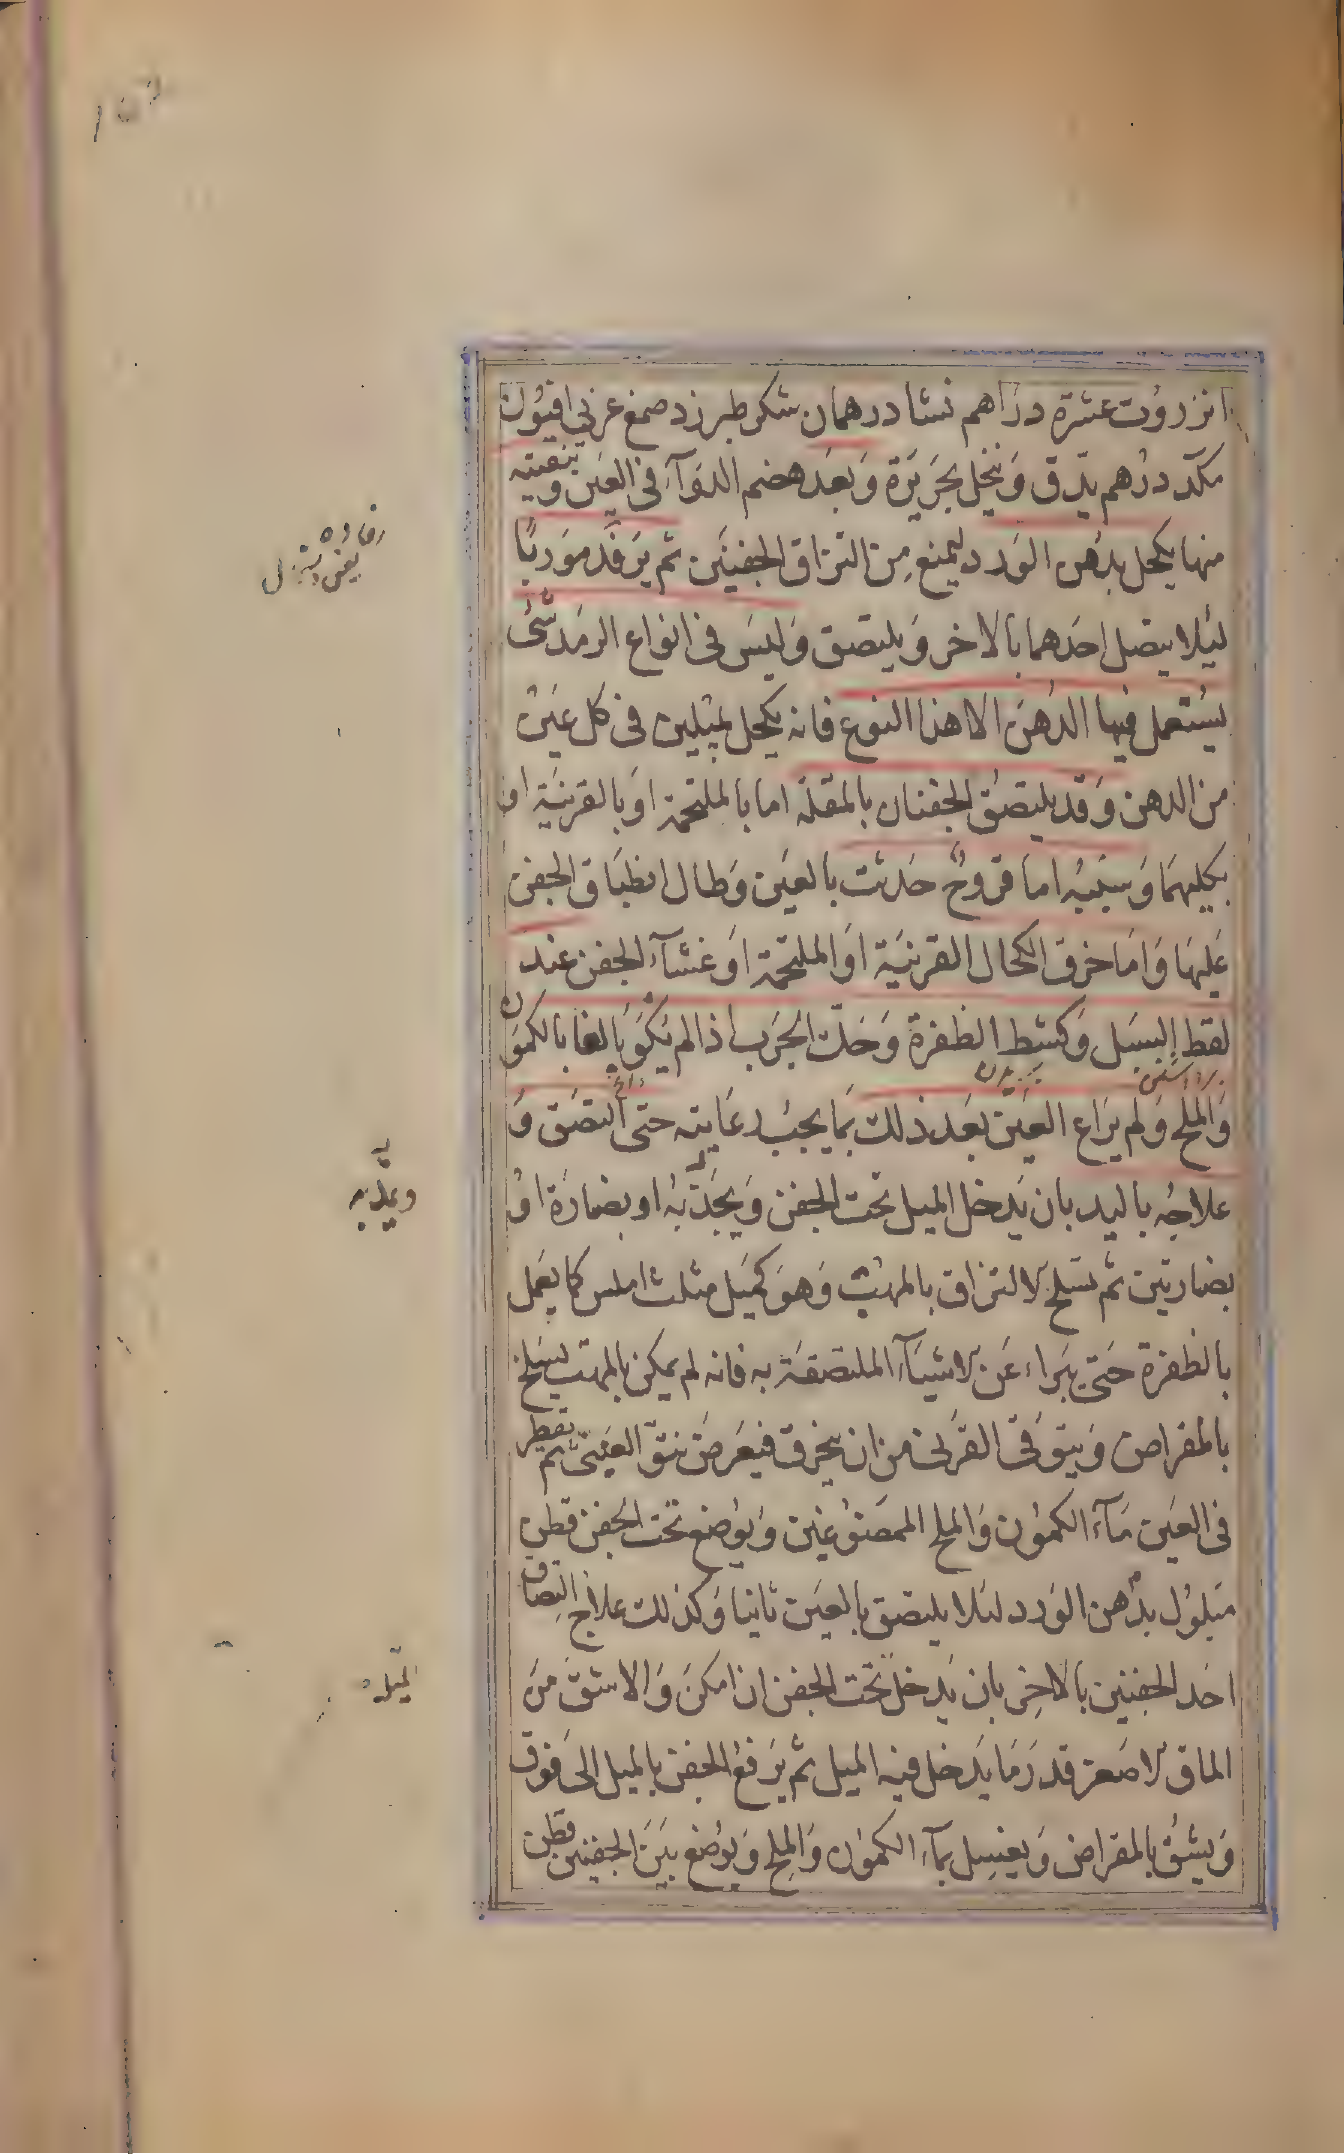 انزروت عشرة دراهم نشا درهمان سكر طبرزد صمغ عربي افيون
مكد درهم يدق وَينخل بحريرة وَبعَد هضم الدوآء فى العَين وتنقيته
منها يكحل بدهن الوَرد ليمنع مِن التزاق الجفنَين ثم يرَفد مورَبًا
ليئلا يتصل احَدهما بالاخر وَيلتصق وَليسَ فى انواع الرمَد شئ
يسُتعمل فيها الدهنَ الا هذا النوع فانه يكحل بميلين فى كل عَين
من الدهن وَقد يلتصق الجفنان بالمقلة اما بالملتحمة اوَ بالقرنيَة اوَ
بكليهمَا وَسببه اما قروحٌ حَدثت بالعيَن وَطال انطبَاق الجفن
عَليهَا وَامَا خرق الكحال القرنيَة اوَ الملتحمة اوَ غشآء الجفن عند
لقط السَبل وَكشط الظفرة وَحَك الجَرب اذا لم يكوَ بالغا بالكموَن
وَالملح وَلم يرَاع العَين بعَد ذلك بمَا يجبُ رعَايته حتى التصَق وَ
علاجُه باليد بان يَدخل الميل تحت الجفن وَيجَذبهُ او بصنارَة اوَ
بصنارتين ثم يسَلخ الالتزاق بالمهت وَهوَ كميَل مثلث املس كما يعَمل
بالظفرة حَتى يبرَاء عَن الاشيَآء الملتصَقة به فانه لم يمكن بالمهت يسَلخ
بالمقراض وَيتوَقى القرَنى من ان يخرق فيعَرض نتوّ العنبى ثم يقطر
فى العَين مَآء الكموُن وَالملح الممضوُغين وَيوُضع تحت الجفن قطن
مَبلوُل بدُهن الوَرد لئلا يلتصق بالعَين ثانيا وَكذلك علاج التصاق
احَد الجفنين بالاخر بان يَدخل تحت الجفن ان امكنَ وَالا شقَ منَ
الماق الاصَعر قدرَمَا يَدخل فيه الميل ثم يرَفع الجفن بالميل الى فوَق
وَيشُق بالمقراض وَيغسِل بمآء الكموُن وَالملِح وَيوُضع بيَنَ الجفنين قطن
رفاده
يعنى
ويمدّ به
الميل